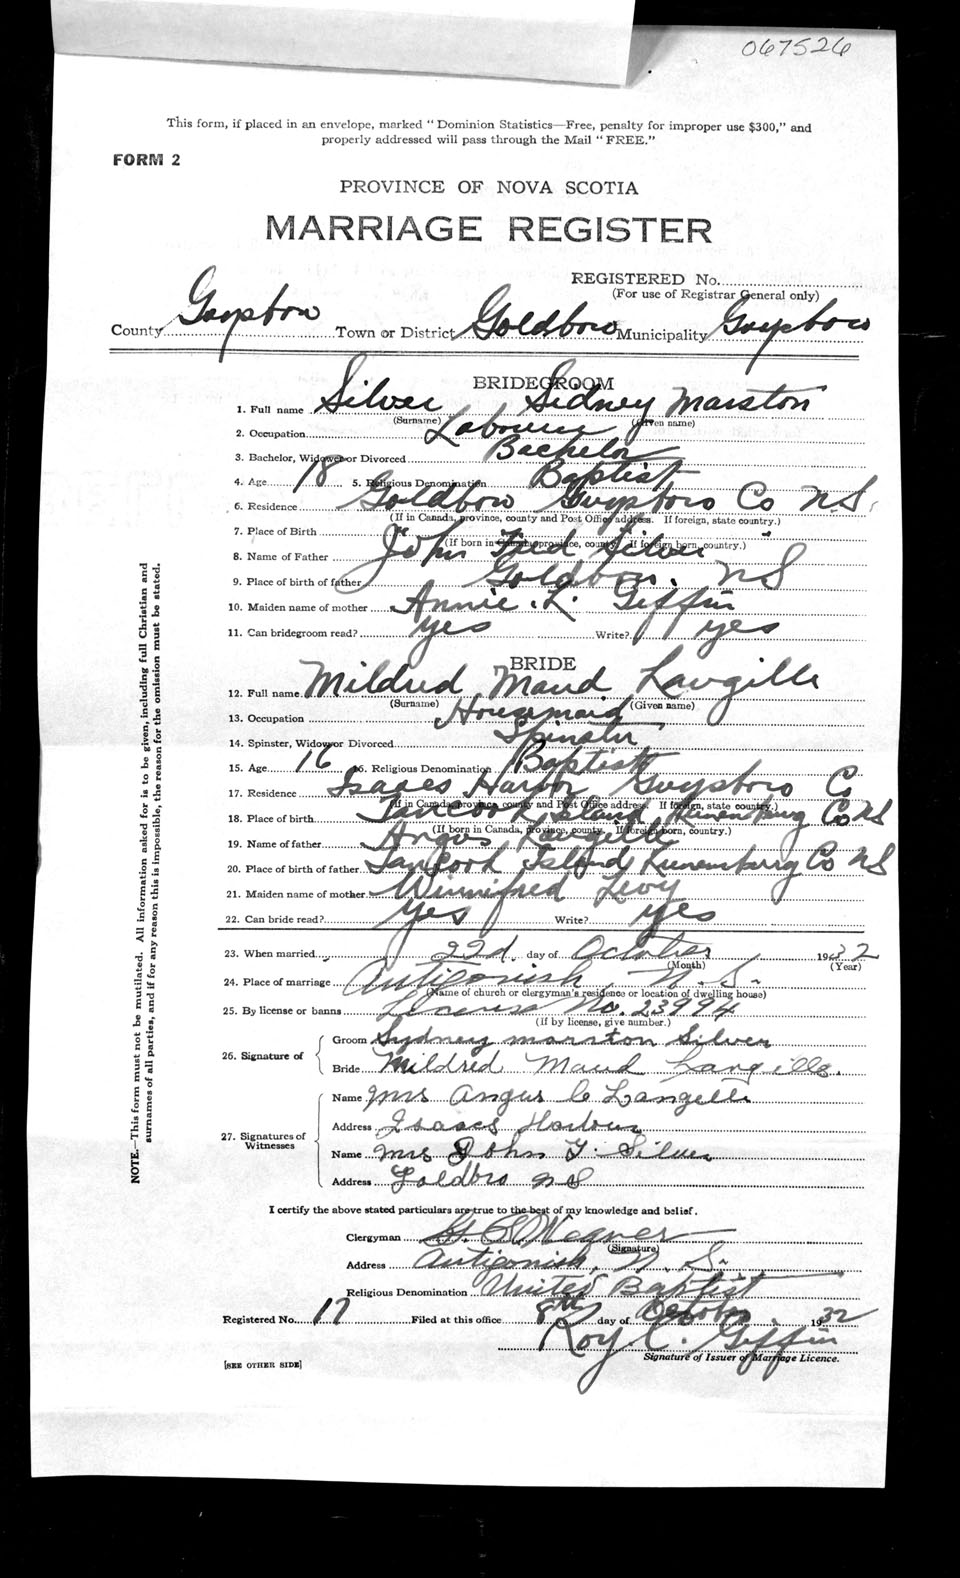 067526
This form, if placed in an envelope, marked "Dominion Statistics—Free, penalty for improper use $300," and
properly addressed will pass through the Mail "FREE."
FORM 2
PROVINCE OF NOVA SCOTIA
MARRIAGE REGISTER
REGISTERED No.
(For use of Registrar General only)
County Guysboro Town or District Goldboro Municipality Guysboro
BRIDEGROOM
1. Full name Silver Sidney Marston
(Surname) (Given name)
2. Occupation Labourer
3. Bachelor, Widower or Divorced Bachelor
4. Age 18 5. Religious Denomination Baptist
6. Residence Goldboro Guysboro Co N.S.
(If in Canada, province, county and Post Office address. If foreign, state country.)
7. Place of Birth "
(If born in Canada, province, county. If foreign born, country.)
8. Name of Father John Fred Silver
9. Place of birth of father Goldboro. NS
10. Maiden name of mother Annie. L. Giffin
11. Can bridegroom read? yes Write? yes
BRIDE
12. Full name Mildred Maud Langille
(Surname) (Given name)
13. Occupation Housemaid
14. Spinster, Widow or Divorced Spinster
15. Age 16 16. Religious Denomination Baptist
17. Residence Isaacs Harbor Guysboro Co
(If in Canada, province, county and Post Office address. If foreign, state country.)
18. Place of birth Tancook Island Lunenburg Co NS
(If born in Canada, province, county. If foreign born, country.)
19. Name of father Angus Langille
20. Place of birth of father Tancook Island Lunenburg Co NS
21. Maiden name of mother Winnifred Levy
22. Can bride read? yes Write? yes
23. When married 22d. day of October 1932
(Month) (Year)
24. Place of marriage Antigonish N. S.
(Name of church or clergyman's residence or location of dwelling house)
25. By license or banns License No. 23994
(If by license, give number.)
26. Signature of
Groom Sydney marston Silver
Bride Mildred Maud Langille.
27. Signatures of Witnesses
Name Mrs Angus C Langille
Address Isaacs Harbour
Name Mrs John F. Silver
Address Goldbro NS
I certify the above stated particulars are true to the best of my knowledge and belief.
Clergyman Wagner
(Signature)
Address Antigonish, N. S.
Religious Denomination United Baptist
Registered No. 17 Filed at this office 8th day of October 1932
Roy C. Giffin
Signature of Issuer of Marriage Licence.
[SEE OTHER SIDE]
NOTE.—This form must not be mutilated. All information asked for is to be given, including full Christian and
surnames of all parties, and if for any reason this is impossible, the reason for the omission must be stated.